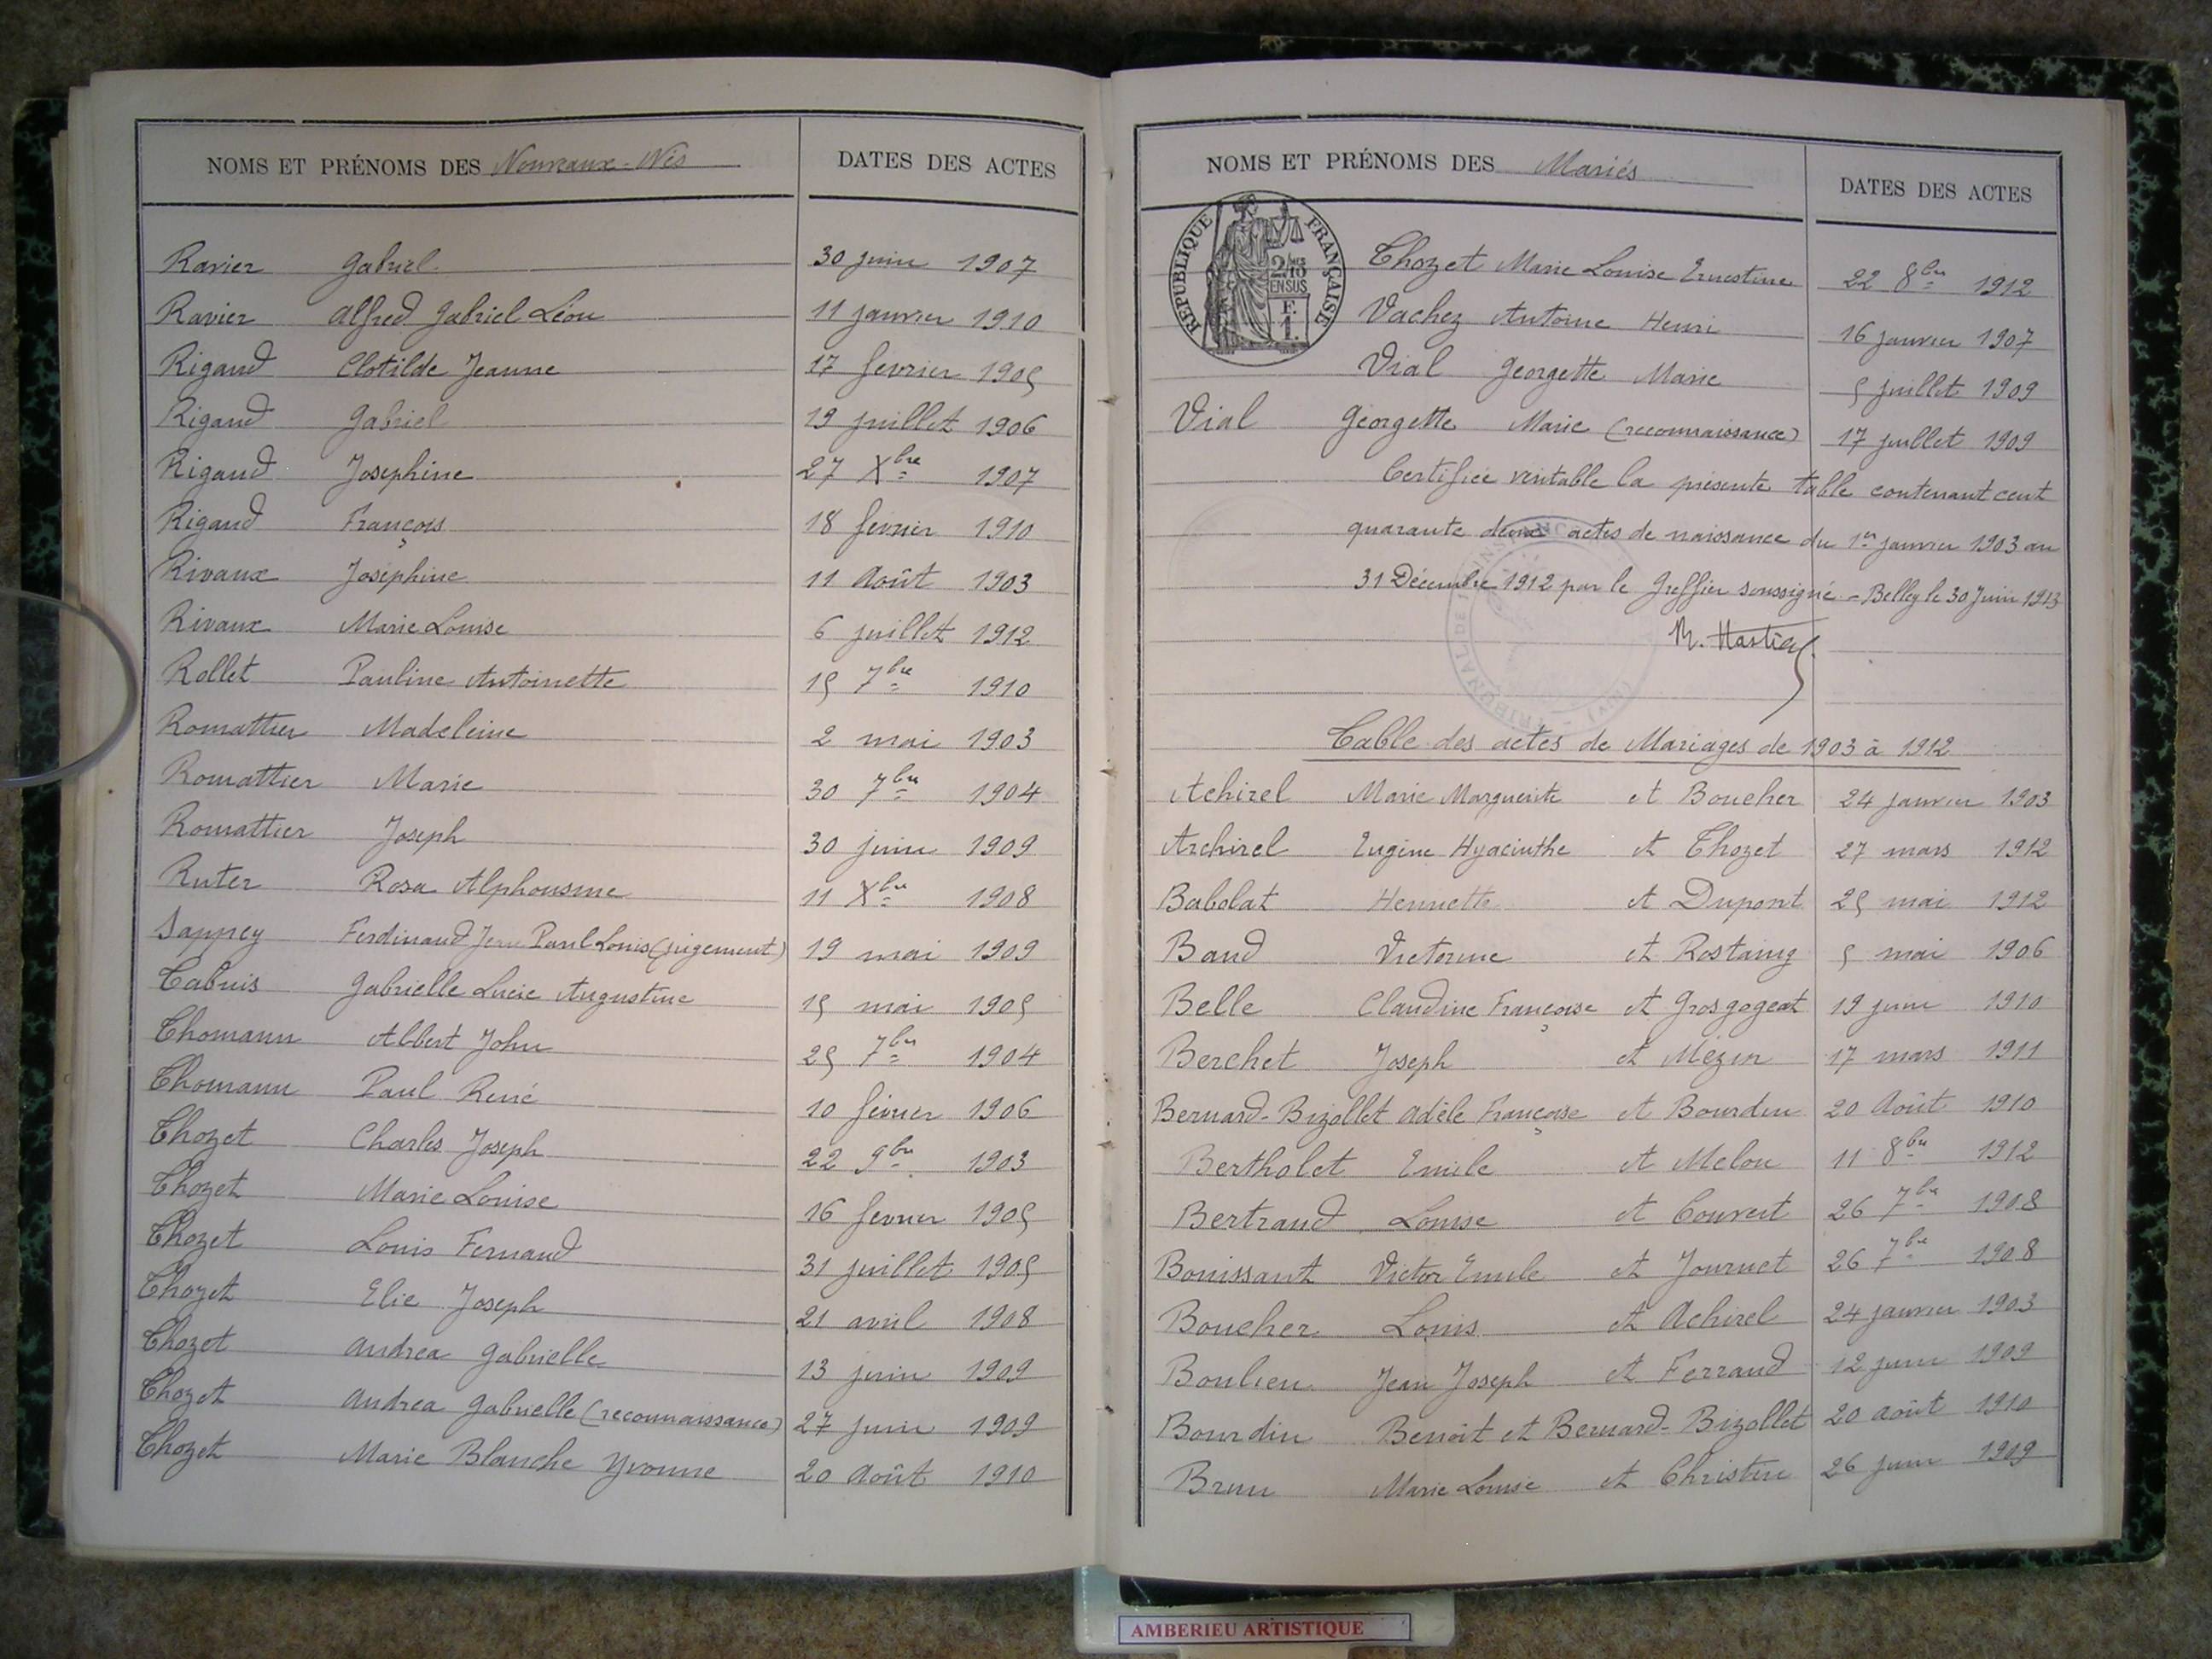 NOMS ET PRÉNOMS DES Nouveaux-Nés DATES DES ACTES
Ravier Gabriel 30 juin 1907
Ravier Alfred Gabriel Léon 11 janvier 1910
Rigaud Clotilde Jeanne 17 fevrier 1905
Rigaud Gabriel 19 juillet 1906
Rigaud Josephine 27 Xbre 1907
Rigaud François 18 fevrier 1910
Rivaux Joséphine 11 Août 1903
Rivaux Marie Louise 6 juillet 1912
Rollet Pauline Antoinette 15 7bre 1910
Romattier Madeleine 2 mai 1903
Romattier Marie 30 7bre 1904
Romattier Joseph 30 juin 1909
Ruter Rosa Alphonsine 11 Xbre 1908
Sappey Ferdinand Jean Paul Louis (jugement) 19 mai 1909
Tabuis Gabrielle Lucie Augustine 15 mai 1905
Thomann Albert John 25 7bre 1904
Thomann Paul René 10 février 1906
Thozet Charles Joseph 22 9bre 1903
Thozet Marie Louise 16 fevrier 1905
Thozet Louis Fernand 31 juillet 1905
Thozet Elie Joseph 21 avril 1908
Thozet Andrea Gabrielle 13 juin 1909
Thozet Andrea Gabrielle (reconnaissance) 27 juin 1909
Thozet Marie Blanche Yvonne 20 Août 1910
NOMS ET PRÉNOMS DES Mariés DATES DES ACTES
RÉPUBLIQUE FRANÇAISE
2/10 EN SUS
F. 1.
Thozet Marie Louise Ernestine 22 8bre 1912
Vachez Antoine Henri 16 janvier 1907
Vial Georgette Marie 5 juillet 1909
Vial Georgette Marie (reconnaissance) 17 juillet 1909
Certifiée veritable la présente table contenant cent
quarante deux actes de naissance du 1er janvier 1903 au
31 Décembre 1912 par le Greffier soussigné - Belley le 30 Juin 1913
Table des actes de Mariages de 1903 à 1912
Achirel Marie Marguerite et Boucher 24 janvier 1903
Archirel Eugène Hyacinthe et Thozet 27 mars 1912
Babolat Henriette et Dupont 25 mai 1912
Baud Victorine et Rostaing 5 mai 1906
Belle Claudine Françoise et Grosgogeat 19 juin 1910
Berchet Joseph et Mézin 17 mars 1911
Bernard-Bizollet Adèle Françoise et Bourdin 20 Août 1910
Bertholet Emile et Melou 11 8bre 1912
Bertrand Louise et Couvert 26 7bre 1908
Bouissant Victor Emile et Journet 26 7bre 1908
Boucher Louis et Achirel 24 janvier 1903
Boulieu Jean Joseph et Ferraud 12 juin 1909
Bourdin Benoit et Bernard-Bizollet 20 août 1910
Brun Marie Louise et Christin 26 juin 1909
AMBERIEU ARTISTIQUE